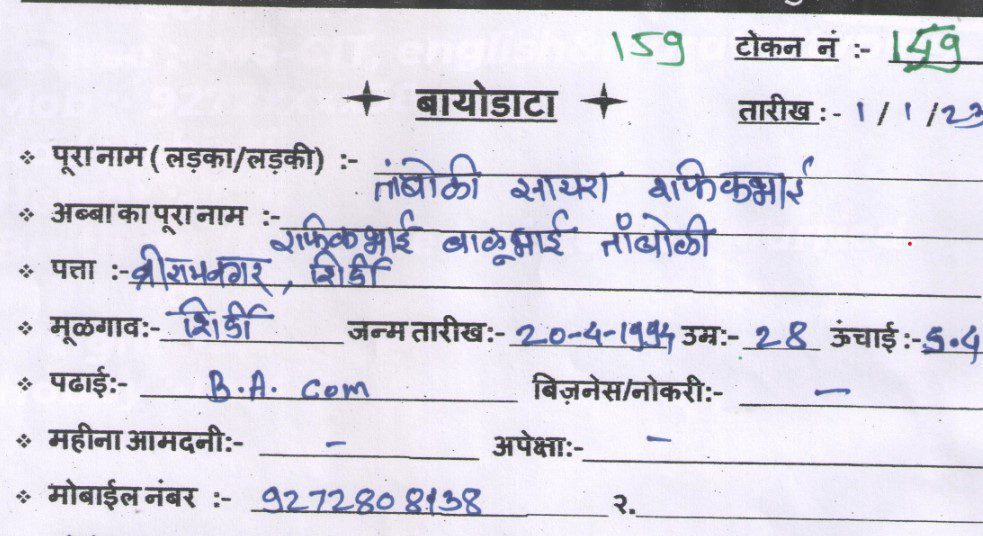 159 टोकन नं :- 159
✦ बायोडाटा ✦
तारीख :- 1/1/23
❖ पूरा नाम ( लड़का/लड़की) :- तांबोळी सायरा शफिकभाई
❖ अब्बा का पूरा नाम :- शफिकभाई बाळूभाई तांबोळी
❖ पत्ता :- श्रीरामनगर, शिर्डी
❖ मूळगाव:- शिर्डी जन्म तारीख:- 20-4-1994 उम्र:- 28 ऊंचाई :- 5.4
❖ पढाई:- B.A. com बिज़नेस/नोकरी:- —
❖ महीना आमदनी:- - अपेक्षा:- -
❖ मोबाईल नंबर :- 9272808138 २.